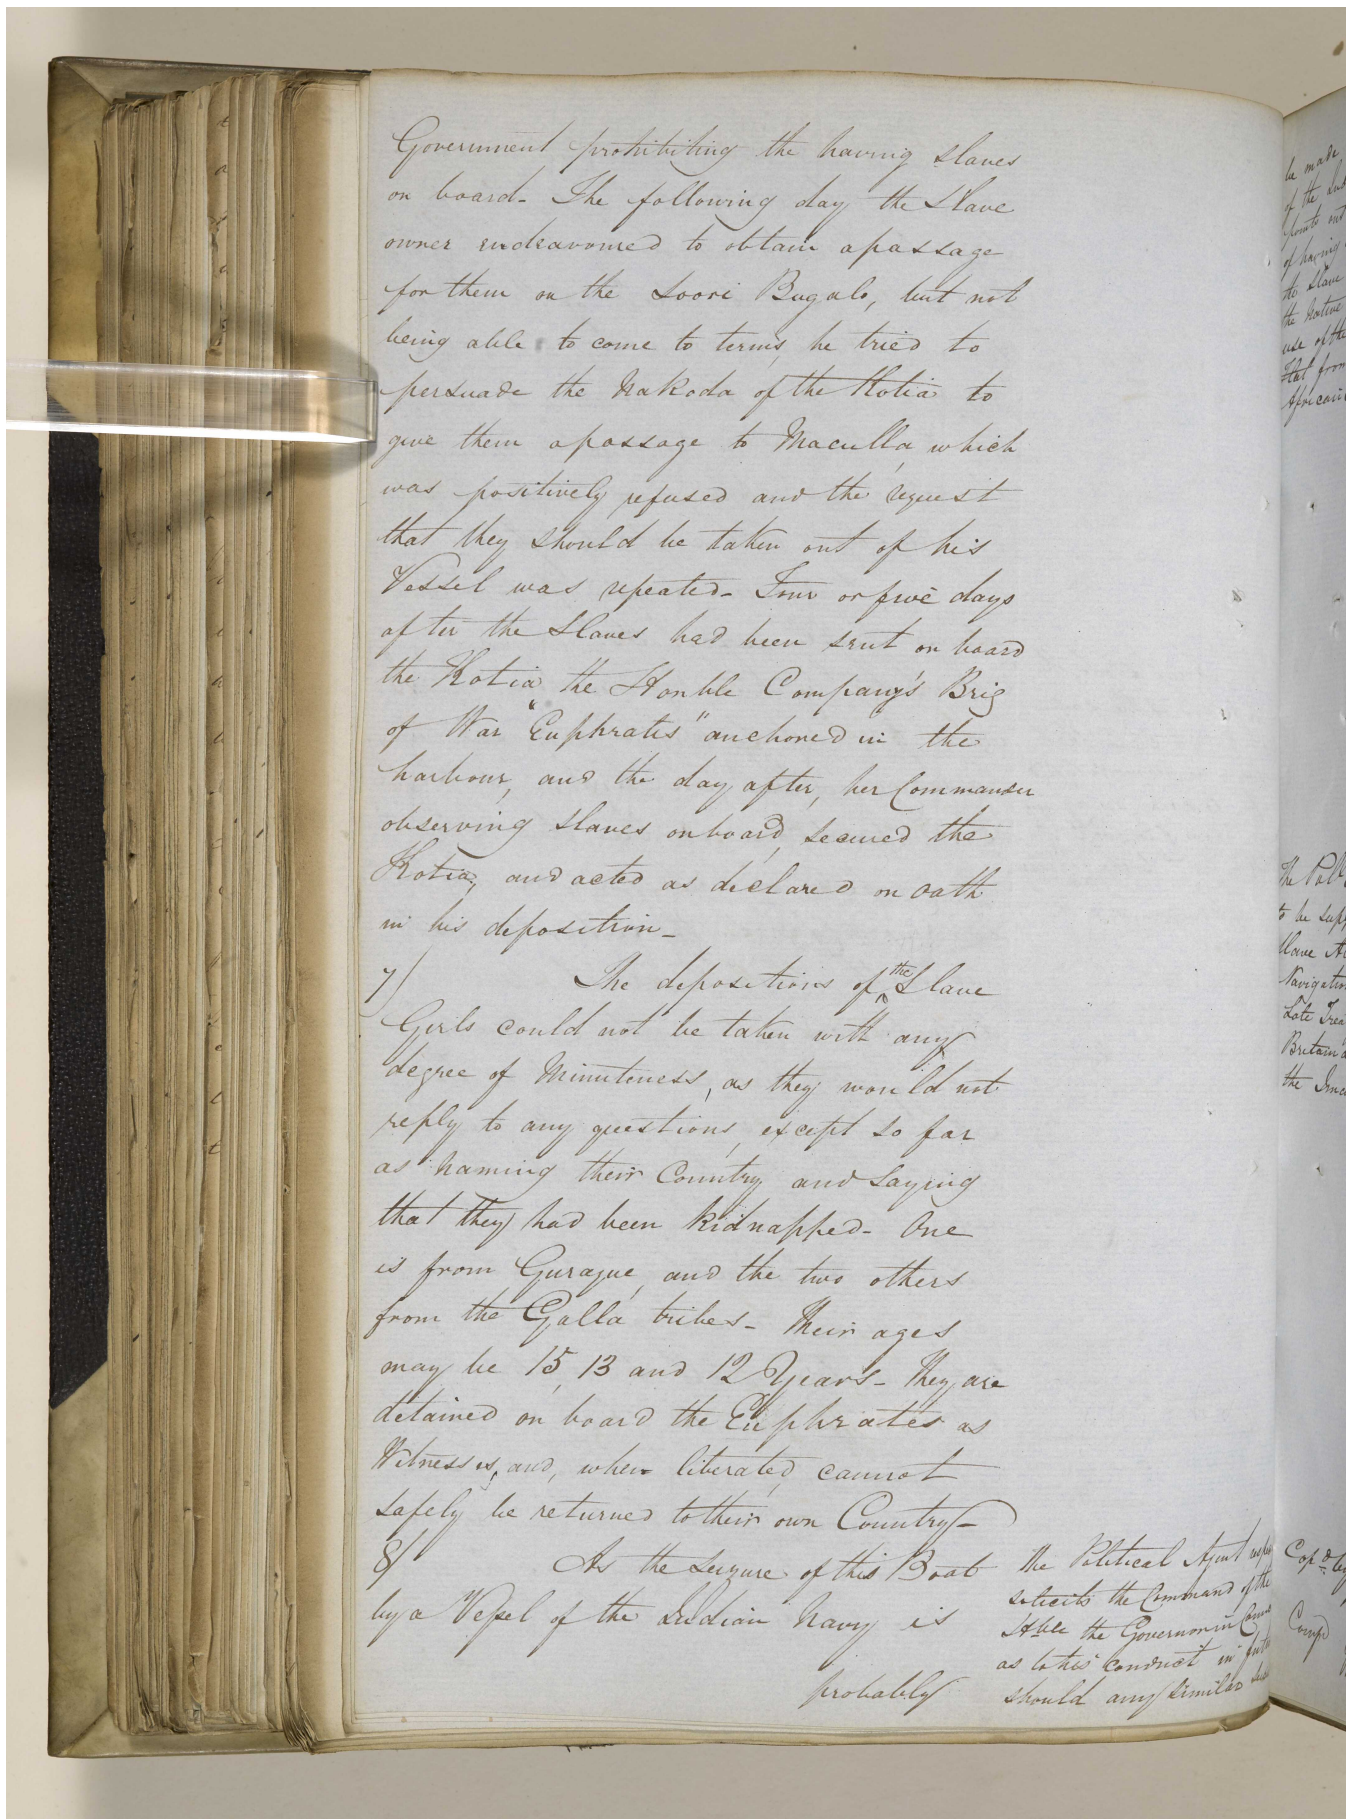 Government prohibiting the having slaves
on board. The following day the Slave
owner endeavoured to obtain a passage
for them on the Soori Bugalo, but not
being able to come to terms, he tried to
persuade the Nakoda of the Kotia to
give them a passage to Maculla, which
was positively refused and the request
that they should be taken out of his
Vessel was repeated_ Four or five days
after the Slaves had been sent on board
the Kotia, the Honble Company's Brig
of War "Euphrates" anchored in the
harbour, and the day after, her Commander
observing slaves on board, secured the
Kotia, and acted as declared on oath
in his deposition_
7/ The depositions of the Slave
Girls could not be taken with any
degree of Minuteness, as they would not
reply to any questions, except so far
as naming their Country and saying
that they had been kidnapped_ One
is from Gurague, and the two others
from the Galla tribes_ Their ages
may be 15, 13 and 12 Years_ They are
detained on board the Euphrates as
Witnesses, and, when liberated, cannot
safely be returned to their own Country_
8/ As the seizure of this Boat
by a Vessel of the Indian Navy is
probably
The Political Agent
solicits the Command of the
Hble the Governor in
as to his conduct in
should any similar
be made
of the
points out
of having
the Slave
the Native
use of the
that from
African
The
to be
Slave
Navigation
Late
Britain
the